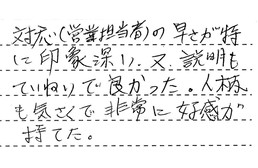 対応(営業担当者)の早さが特
に印象深い。又、説明も
ていねいで良かった。人柄
も気さくで非常に好感が
持てた。